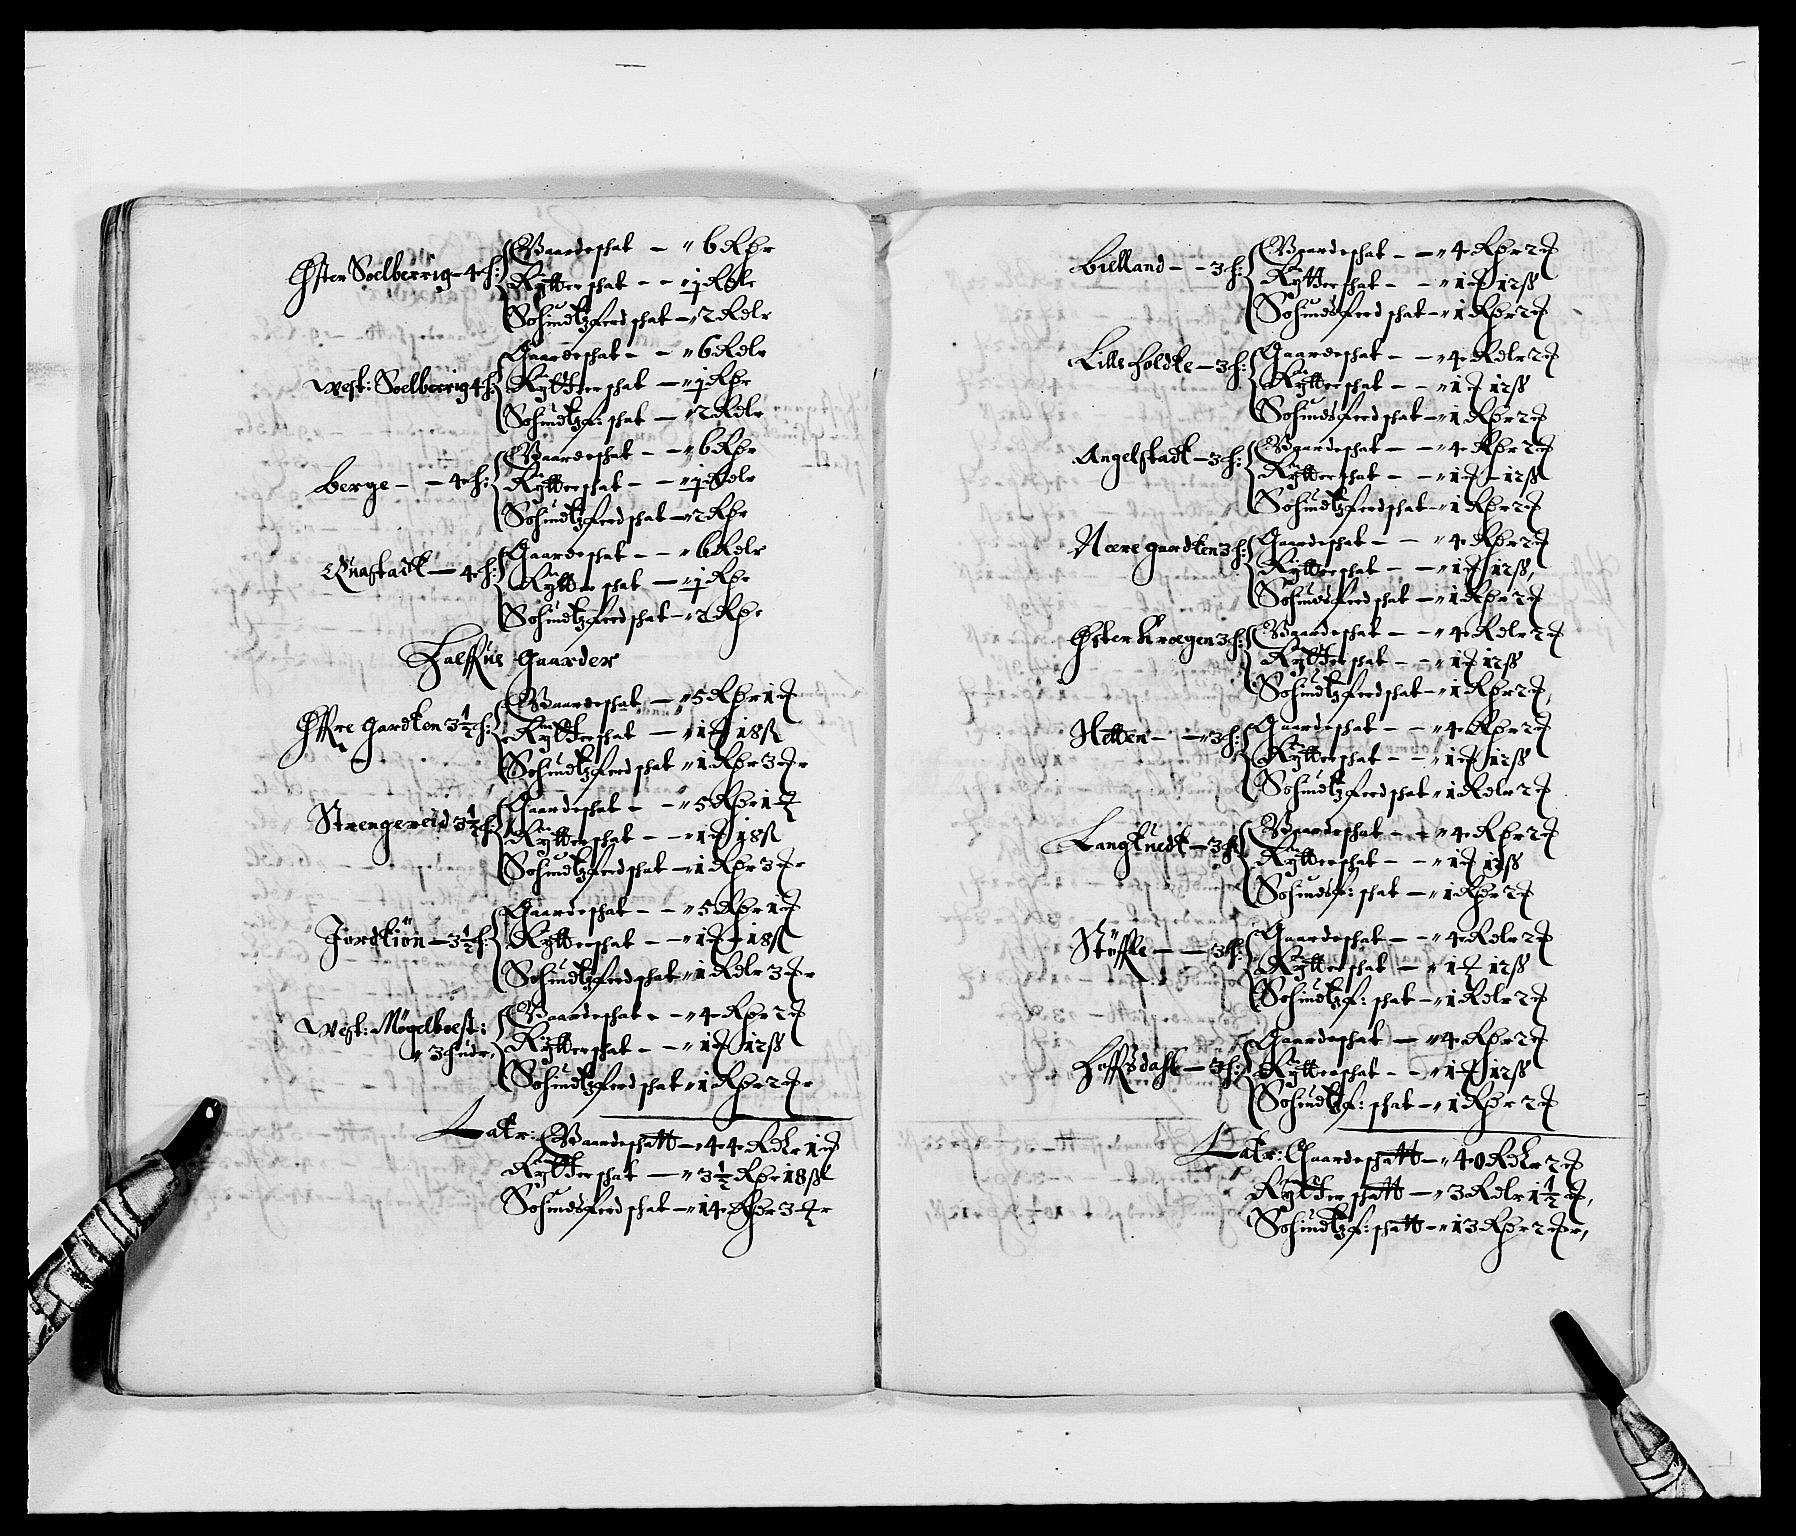 Øster Soelberrig - 4 h: Gaardeschat - - " 6 Rdr
Rytterschat - - " ½ Rdr
Sosindtzferd schat - " 2 Rdlr
West: Soelberrig 4 h: Gaardeschat - - " 6 Rdlr
Rytterschat - " ½ Rdr
Sosindtzf: schat - " 2 Rdlr
Berge - - 4 h: Gaardeschat - - " 6 Rdr
Rytterschat - - " ½ Rdlr
Sosindtzferd schat - " 2 Rdr
Quastadt - 4 h: Gaardeschat - - " 6 Rdlr
Rytterschat - " ½ Rdr
Sosindtzferd schat - " 2 Rdr
Halffue Gaarder
Øffre Gardten 3½ h: Gaardeschat - " 5 Rdr 1 ort
Rytterschat - " 1 ort 18 ß
Sosindtzferd schat " 1 Rdr 3 ort
Strengereid 3½ h: Gaardeschat - - " 5 Rdr 1 ort
Rytterschat - - " 1 ort 18 ß
Sosindtzferd schat - " 1 Rdr 3 ort
Jordkiøn - 3½ h: Gaardeschat - - " 5 Rdr 1 ort
Rytterschat - - " 1 ort 18 ß
Sosindtzferd schat " 1 Rdlr 3 ort
West: Møgelboest:
" 3 hudr, Gaardeschat - - " 4 Rdr 2 ort
Rytterschat - - " 1 ort 12 ß
Sosindtzferd schat " 1 Rdr 2 ort
Latr: Gaardeschatt - " 44 Rdlr 1 ort
Rytterschat - " 3½ Rdr 18 ß
Sosindsferd schat - " 14 Rdr 3 ort
Bielland - - 3 h: Gaardeschat - - " 4 Rdr 2 ort
Rytterschat - - " 1 ort 12 ß
Sosindsferd schat - " 1 Rdr 2 ort
Lille Holdte - 3 h: Gaardeschat - - " 4 Rdlr 2 ort
Rytterschat - - " 1 ort 12 ß
Sosindsferd schat - " 1 Rdr 2 ort
Angelstadt - 3 h: Gaardeschat - - " 4 Rdr 2 ort
Rytterschat - - " 1 ort 12 ß
Sosindtzferd schat - " 1 Rdr 2 ort
Neere gaardten 3 h: Gaardeschat - - " 4 Rdr 2 ort
Rytterschat - - " 1 ort 12 ß,
Sosindsferd schat - " 1 Rdr 2 ort
Øster Kroegen 3 h: Gaardeschat - - " 4 Rdlr 2 ort
Rytterschat - - " 1 ort 12 ß
Sosindtzferd schat - " 1 Rdr 2 ort,
Netten - - " 3 h: Gaardeschat - - " 4 Rdr 2 ort
Rytterschat - - " 1 ort 12 ß
Sosindtzferd schat " 1 Rdlr 2 ort
Langtuedt - 3 h: Gaardeschat - - " 4 Rdr 2 ort
Rytterschat - - " 1 ort 12 ß
Sosindsf: schat - " 1 Rdr 2 ort
Støffle - - 3 h: Gaardeschat - - " 4 Rdlr 2 ort
Rytterschat - " 1 ort 12 ß
Sosindtzf: schat - " 1 Rdlr 2 ort
Hoffsdahl - 3 h: Gaardeschat - " 4 Rdr 2 ort
Rytterschat - - " 1 ort 12 ß
Sosindtzf: schat - " 1 Rdr 2 ort
Latr: Gaardeschatt - " 40 Rdlr 2 ort
Rytterschatt - " 3 Rdlr 1½ ort,
Sosindtzf: schatt - " 13 Rdr 2 ort,